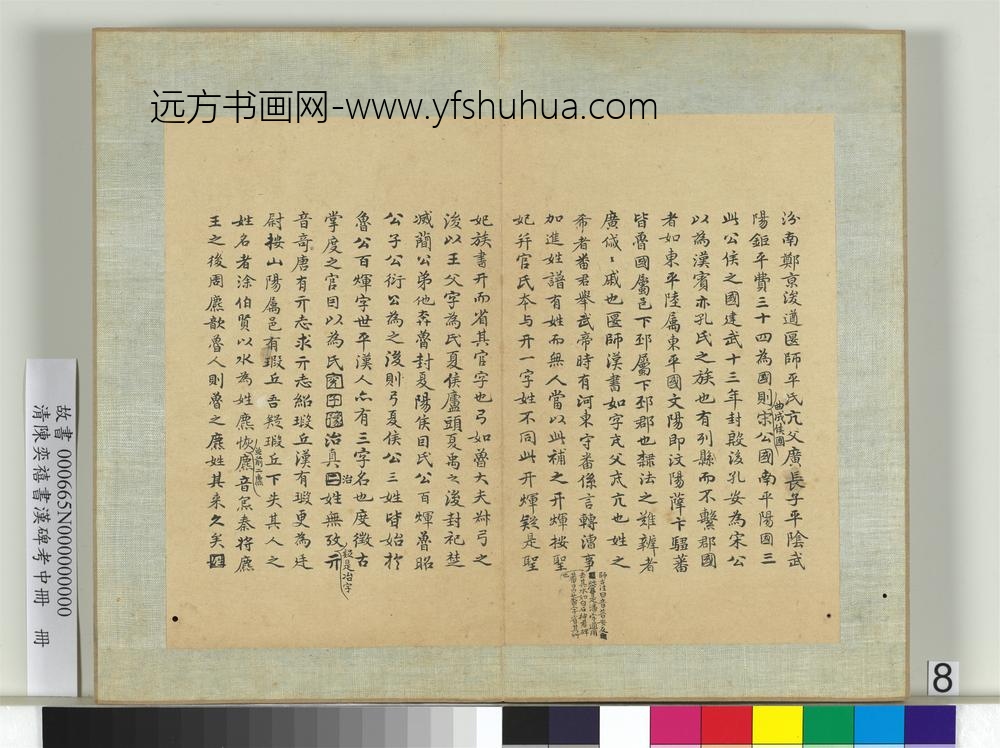 远方书画网-www.yfshuhua.com
汾南鄭京浚遒匽師平氏亢父廣長子平陰武
陽鉅平費三十四為國則宋公國南平陽國三
曲成侯國
此公侯之國建武十三年封殷後孔安為宋公
以為漢賓亦孔氏之族也有列縣而不繫郡國
者如東平陸屬東平國文陽即汶陽薛卞騶蕃
皆魯國屬邑下邳屬下邳郡也隸法之難辨者
廣傶〻戚也匽師漢書如字亢父亢也姓之
希者番君舉武帝時有河東守番係言轉漕事
加進姓譜有姓而無人當以此補之开煇按聖
妃幷官氏本与开一字姓不同此开煇疑是聖
妃族書开而省其官字也弓如魯大夫叔弓之
浚以王父字為氏夏侯廬頭夏禹之浚封祀楚
滅簡公弟他奔魯封夏陽侯目氏公百煇魯昭
公子公衍公為之浚則弓夏侯公三姓皆始於
魯公百煇字世平漢人亦有三字名也度徵古
掌度之官目以為氏治真姓無攷亓
治
疑是冶字
音奇唐有亓志求亓志紹瑕丘漢有瑕更為廷
尉按山陽屬邑有瑕丘吾疑瑕丘下失其人之
姓名者涂伯賢以水為姓麃恢麃音袍秦将麃
王之後周麃歆魯人則魯之麃姓其来久矣
故書 000665N000000000
清陳奕禧書漢碑考中冊 冊
8